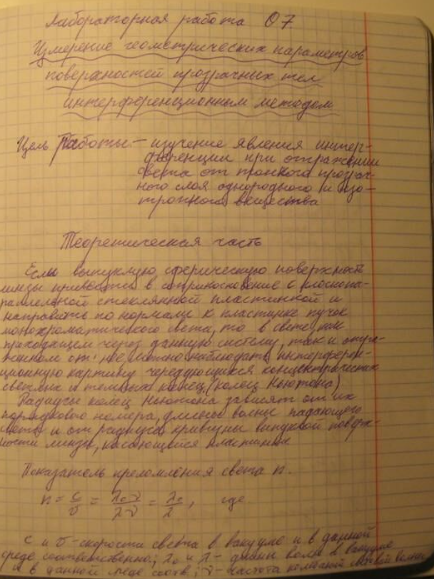 Лабораторная работа О7
Измерение геометрических параметров
поверхностей прозрачных тел
интерференционным методом
Цель Работы – изучение явления интер-
ференции при отражении
света от тонкого прозрач-
ного слоя однородного и изо-
тропного вещества
Теоретическая часть
Если выпуклую сферическую поверхность
линзы привести в соприкосновение с плоскопа-
раллельной стеклянной пластинкой и
направить по нормали к пластинке пучок
монохроматического света, то в свете как
проходящем через данную систему, так и отра-
женном от неё можно наблюдать интерферен-
ционную картину чередующихся концентрических
светлых и темных колец (колец Ньютона)
Радиусы колец Ньютона зависят от их
порядкового номера, длины волны падающего
света и от радиуса кривизны выпуклой поверх-
ности линзы, касающейся пластинки
Показатель преломления света n.
n = c/υ = λ₀ν/λν = λ₀/λ, где
c и υ - скорости света в вакууме и в данной
среде соответственно; λ₀ и λ - длины волн в вакууме
и в данной среде соотв.; ν - частота колебаний световой волны